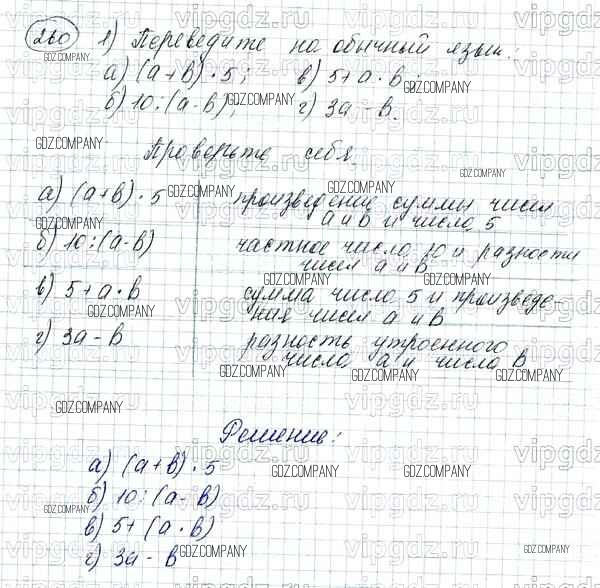 260 1) Переведите на обычный язык:
а) (а+в)·5; в) 5+а·в;
б) 10:(а-в); г) 3а-в.
Проверьте себя.
а) (а+в)·5 произведение суммы чисел
а и в и число 5
б) 10:(а-в) частное число 10 и разности
чисел а и в
в) 5+а·в сумма число 5 и произведе-
ния чисел а и в
г) 3а-в разность утроенного
число а и числа в
Решение:
а) (а+в)·5
б) 10:(а-в)
в) 5+(а·в)
г) 3а-в
GDZ.COMPANY
vipgdz.ru